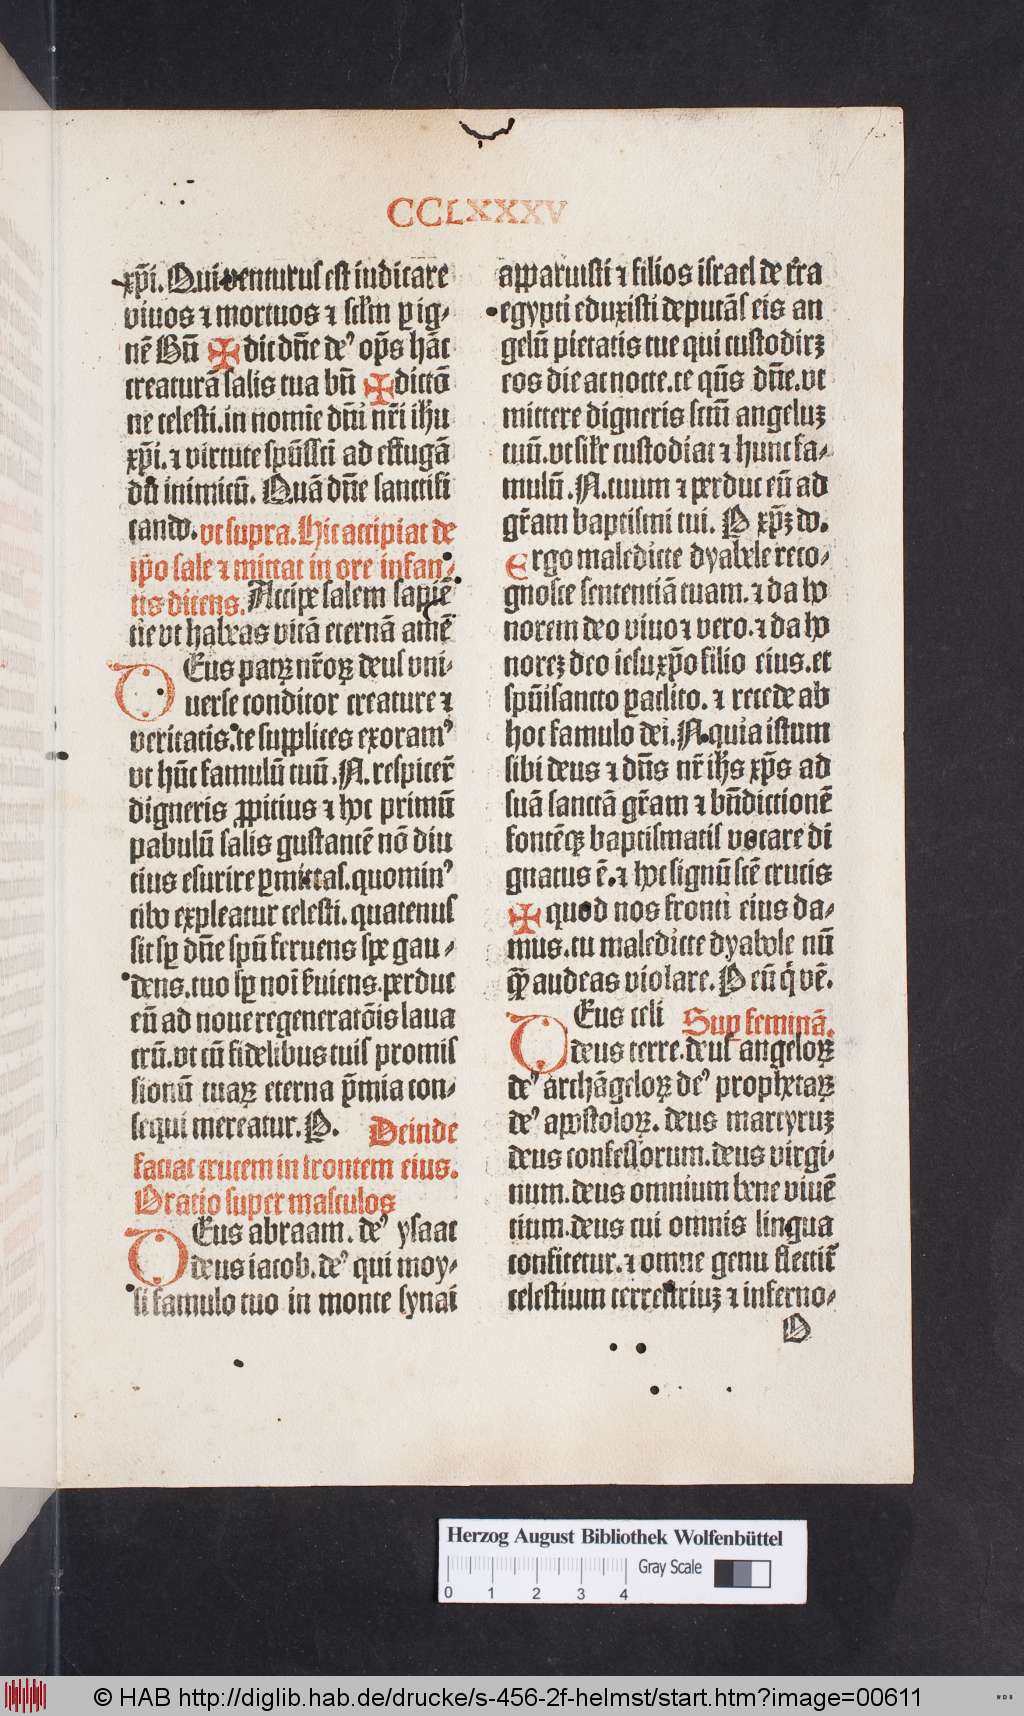 CCLXXXV
xp̄i. Qui venturus est iudicare
viuos ⁊ mortuos ⁊ sclm̄ ꝑ ig-
nē Bn̄ ✠ dic dn̄e de⁹ op̄s hāc
creaturā salis tua bn̄ ✠ dictō
ne celesti. in nomīe dn̄i nr̄i ih̄u
xp̄i. ⁊ virtute sp̄ūsscī ad effugā
dū inimicū. Quā dn̄e sanctifi
cando. vt supra. Hic accipiat de
ip̄o sale ⁊ mittat in ore infan-
tis dicens. Accipe salem sapiē
tie vt habeas vitā eternā amē
DEus patꝝ nr̄oꝝ deus vni-
uerse conditor creature ⁊
veritatis. te supplices exoram⁹
vt hūc famulū tuū .N. respicer̄
digneris ꝓpitius ⁊ hoc primū
pabulū salis gustantē nō diu
tius esurire ꝑmittas. quomin⁹
cibo expleatur celesti. quatenus
sit sꝑ dn̄e sp̄ū feruens spe gau-
dens. tuo sꝑ noī s̄uiens. perduc
eū ad noue regeneratōis laua
crū. vt cū fidelibus tuis promis
sionū tuaꝝ eterna p̄mia con-
sequi mereatur. P.
Deinde
faciat crucem in frontem eius.
Oratio super masculos
DEus abraam. de⁹ ysaac
deus iacob. de⁹ qui moy-
si famulo tuo in monte synai
apparuisti ⁊ filios israel de t̄ra
egypti eduxisti deputās eis an
gelū pietatis tue qui custodirꝫ
eos die ac nocte. te qn̄s dn̄e. vt
mittere digneris sctm̄ angeluꝫ
tuū. vt silr̄ custodiat ⁊ hunc fa-
mulū .N. tuum ⁊ perduc eū ad
gr̄am baptismi tui. P xp̄ꝫ do.
Ergo maledicte dyabole reco-
gnosce sententiā tuam. ⁊ da ho
norem deo viuo ⁊ vero. ⁊ da ho
noreꝫ deo iesu xp̄o filio eius. et
sp̄ūisancto ꝑaclito. ⁊ recede ab
hoc famulo dei .N. quia istum
sibi deus ⁊ dn̄s nr̄ ih̄s xp̄s ad
suā sanctā gr̄am ⁊ bn̄dictionē
fontēqꝫ baptismatis vocare di
gnatus ē. ⁊ hoc signū scē crucis
✠ quod nos fronti eius da-
mus. tu maledicte dyabole nū
qᷓꝫ audeas violare. P eū q̇ vē.
Sup̱ feminā.
DEus celi
deus terre. deus angeloꝝ
de⁹ archāgeloꝝ de⁹ prophetaꝝ
de⁹ apostoloꝝ. deus martyruꝫ
deus confessorum. deus virgi-
num. deus omnium bene viuē
tium. deus cui omnis lingua
confitetur. ⁊ omne genu flectit̄
celestium terrestriuꝫ ⁊ inferno-
O
Herzog August Bibliothek Wolfenbüttel
0 1 2 3 4 Gray Scale
© HAB http://diglib.hab.de/drucke/s-456-2f-helmst/start.htm?image=00611